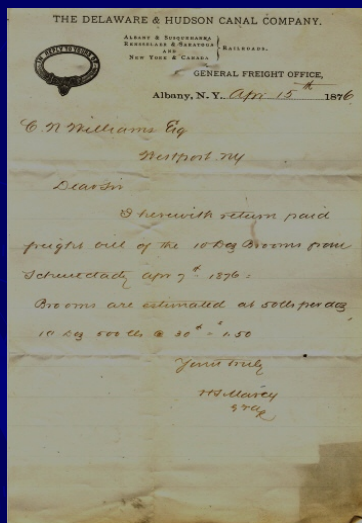 THE DELAWARE & HUDSON CANAL COMPANY.
ALBANY & SUSQUEHANNA
RENSSELAER & SARATOGA
AND
NEW YORK & CANADA
RAILROADS.
GENERAL FREIGHT OFFICE,
Albany, N. Y. Apr 15th 1876
C. N. Williams Esq
Westport. NY
Dear Sir
I herewith return paid
freight bill of the 10 Doz Brooms from
Schenectady Apr 7th 1876.
Brooms are estimated at 50 lbs per doz
10 Doz 500 lbs @ 30 = 1.50
Yours truly
H S Marcy